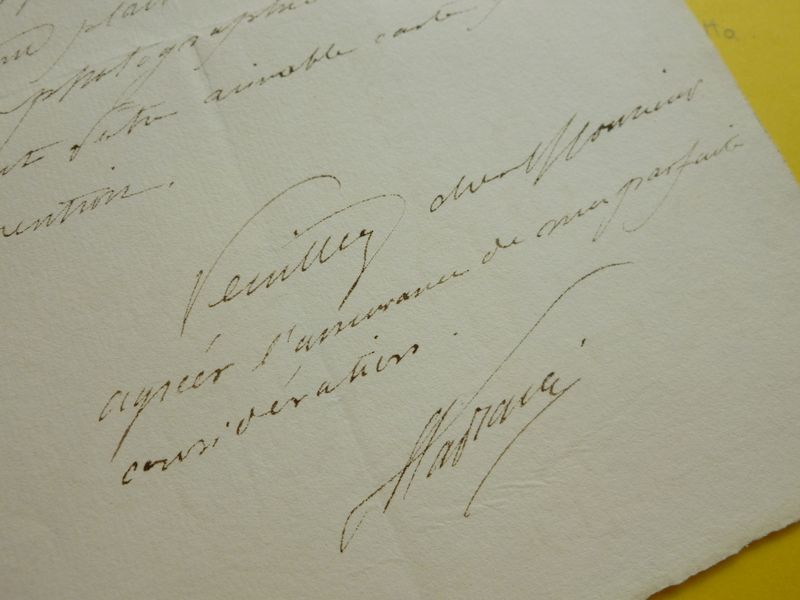 plai
photographi
votre aimable carte
ention.
Veuillez cher Monsieur
agréer l'assurance de ma parfaite
considération.